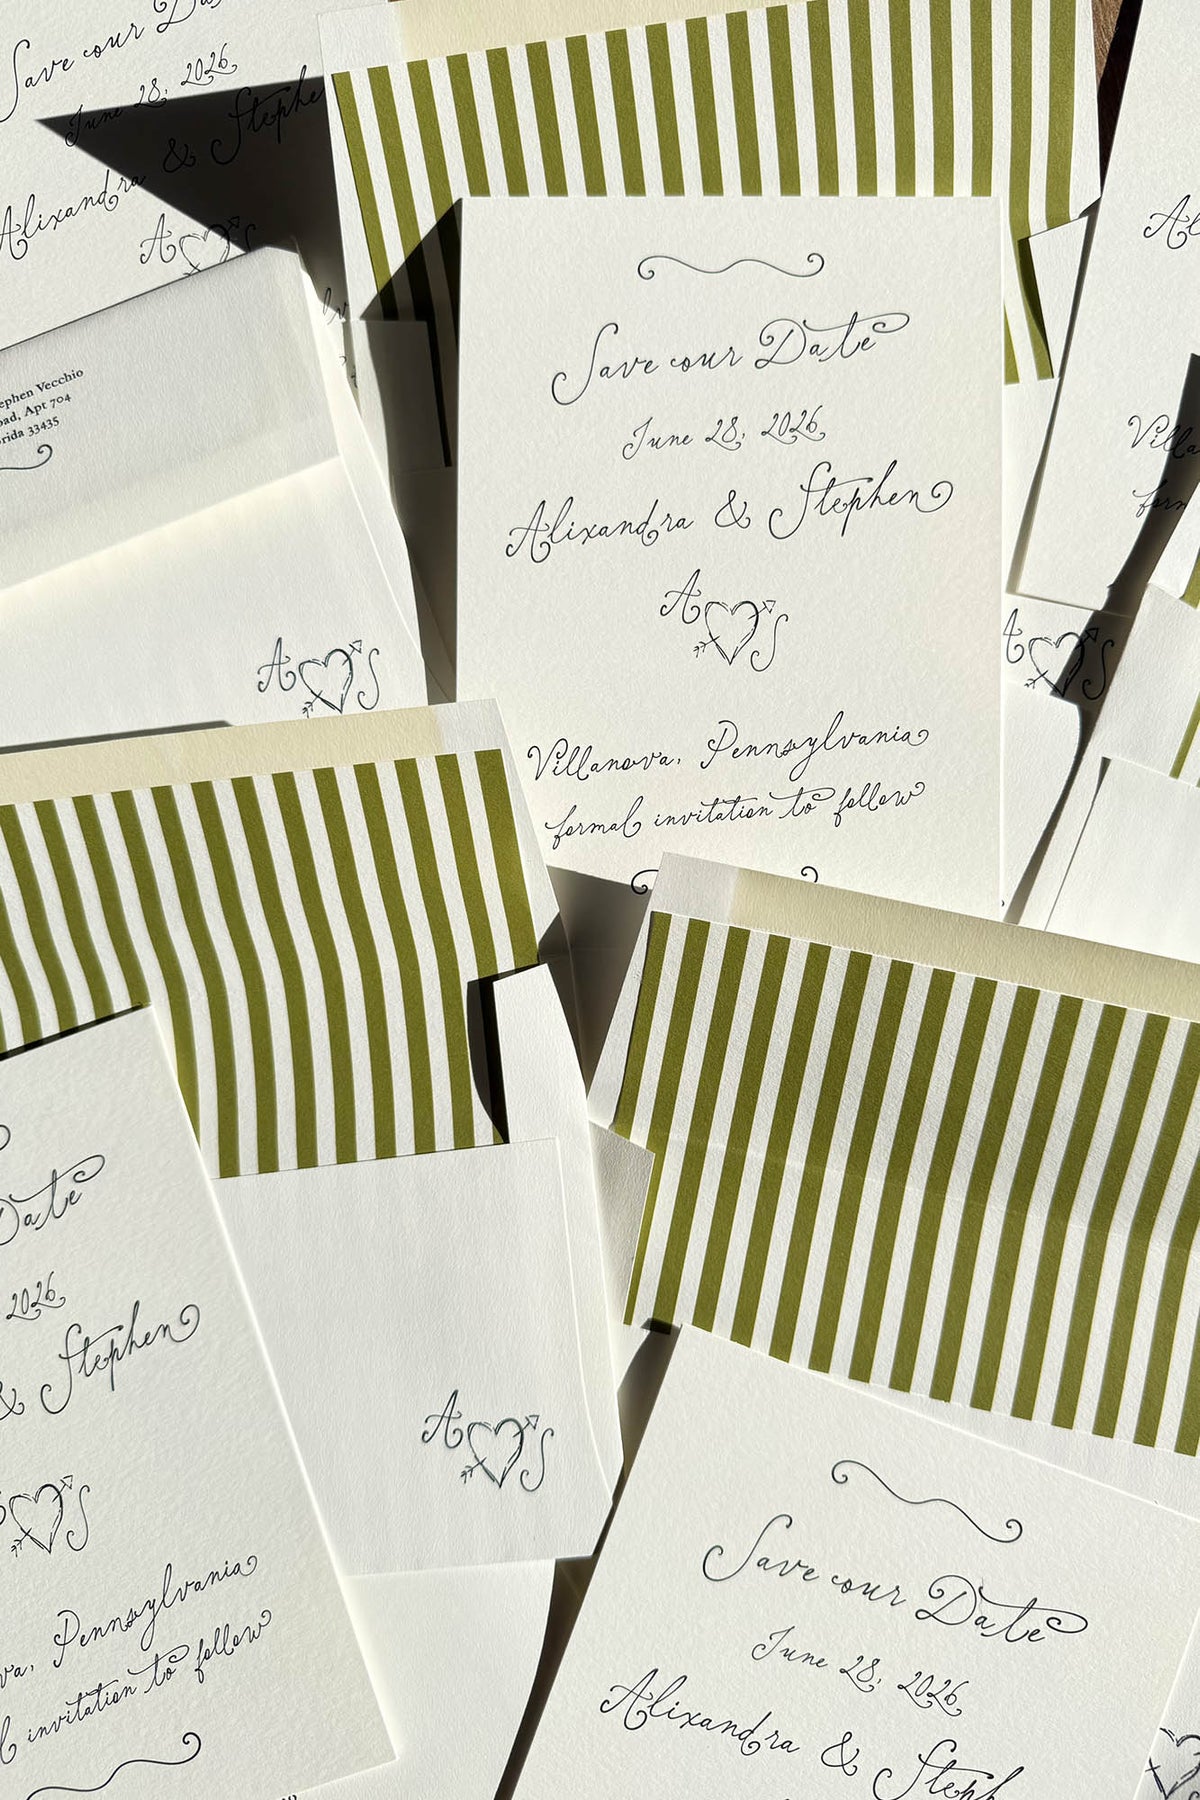 Save our Da
June 28, 2026
Alixandra & Stephe
A S
ephen Vecchio
oad, Apt 704
rida 33435
A S
Save our Date
June 28, 2026
Alixandra & Stephen
A S
Villanova, Pennsylvania
formal invitation to follow
Al
Villa
form
A S
Date
2026
& Stephen
S
va, Pennsylvania
l invitation to follow
A S
Save our Date
June 28, 2026
Alixandra & Steph